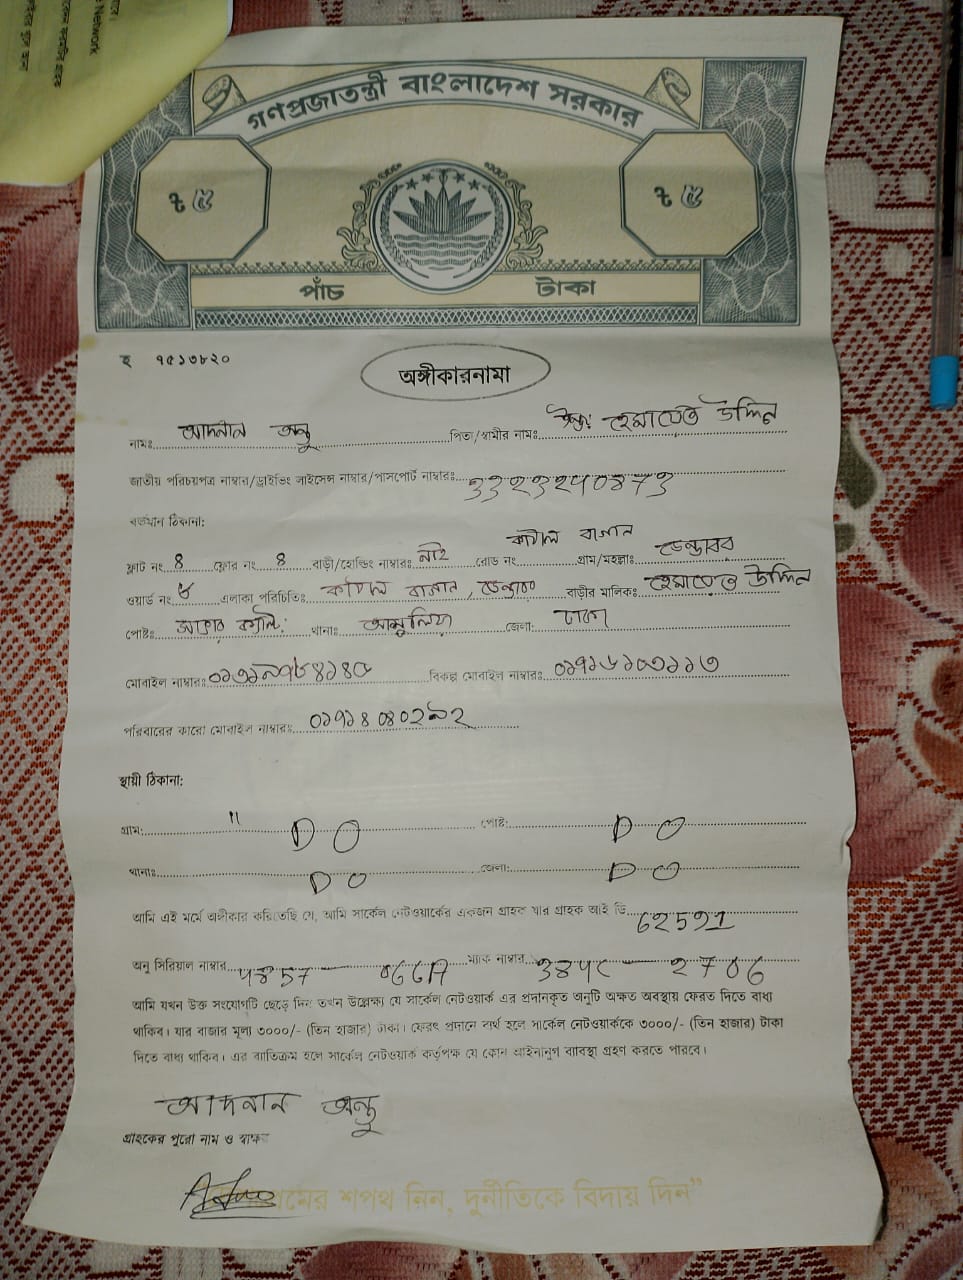 গণপ্রজাতন্ত্রী বাংলাদেশ সরকার
৳ ৫ ৳ ৫
পাঁচ টাকা
হ ৭৫১৩৮২০
অঙ্গীকারনামা
নামঃ আদনান অন্তু পিতা/স্বামীর নামঃ হেমায়েত উদ্দিন
জাতীয় পরিচয়পত্র নাম্বার/ড্রাইভিং লাইসেন্স নাম্বার/পাসপোর্ট নাম্বারঃ
বর্তমান ঠিকানা:
ফ্লাট নং ৪ ফ্লোর নং ৪ বাড়ী/হোল্ডিং নাম্বারঃ নাই রোড নং কাঠাল বাগান গ্রাম/মহল্লাঃ ডেন্ডাবর
ওয়ার্ড নং এলাকা পরিচিতিঃ কাঠাল বাগান, ডেন্ডাবর বাড়ীর মালিকঃ হেমায়েত উদ্দিন
পোষ্টঃ থানাঃ আশুলিয়া জেলা: ঢাকা
মোবাইল নাম্বারঃ বিকল্প মোবাইল নাম্বারঃ
পরিবারের কারো মোবাইল নাম্বারঃ ০১৭১৪০৪০২৯২
স্থায়ী ঠিকানা:
গ্রাম: " DO পোষ্ট: DO
থানাঃ DO জেলা: DO
আমি এই মর্মে অঙ্গীকার করিতেছি যে, আমি সার্কেল নেটওয়ার্কের একজন গ্রাহক যার গ্রাহক আই ডি 62591
অনু সিরিয়াল নাম্বার ম্যাক নাম্বার
আমি যখন উক্ত সংযোগটি ছেড়ে দিব তখন উল্লেক্ষ্য যে সার্কেল নেটওয়ার্ক এর প্রদানকৃত অনুটি অক্ষত অবস্থায় ফেরত দিতে বাধ্য
থাকিব। যার বাজার মূল্য ৩০০০/- (তিন হাজার) টাকা। ফেরৎ প্রদানে ব্যর্থ হলে সার্কেল নেটওয়ার্ককে ৩০০০/- (তিন হাজার) টাকা
দিতে বাধ্য থাকিব। এর ব্যতিক্রম হলে সার্কেল নেটওয়ার্ক কর্তৃপক্ষ যে কোন আইনানুগ ব্যাবস্থা গ্রহণ করতে পারবে।
আদনান অন্তু
গ্রাহকের পুরো নাম ও স্বাক্ষর
শপথ নিন, দুর্নীতিকে বিদায় দিন"